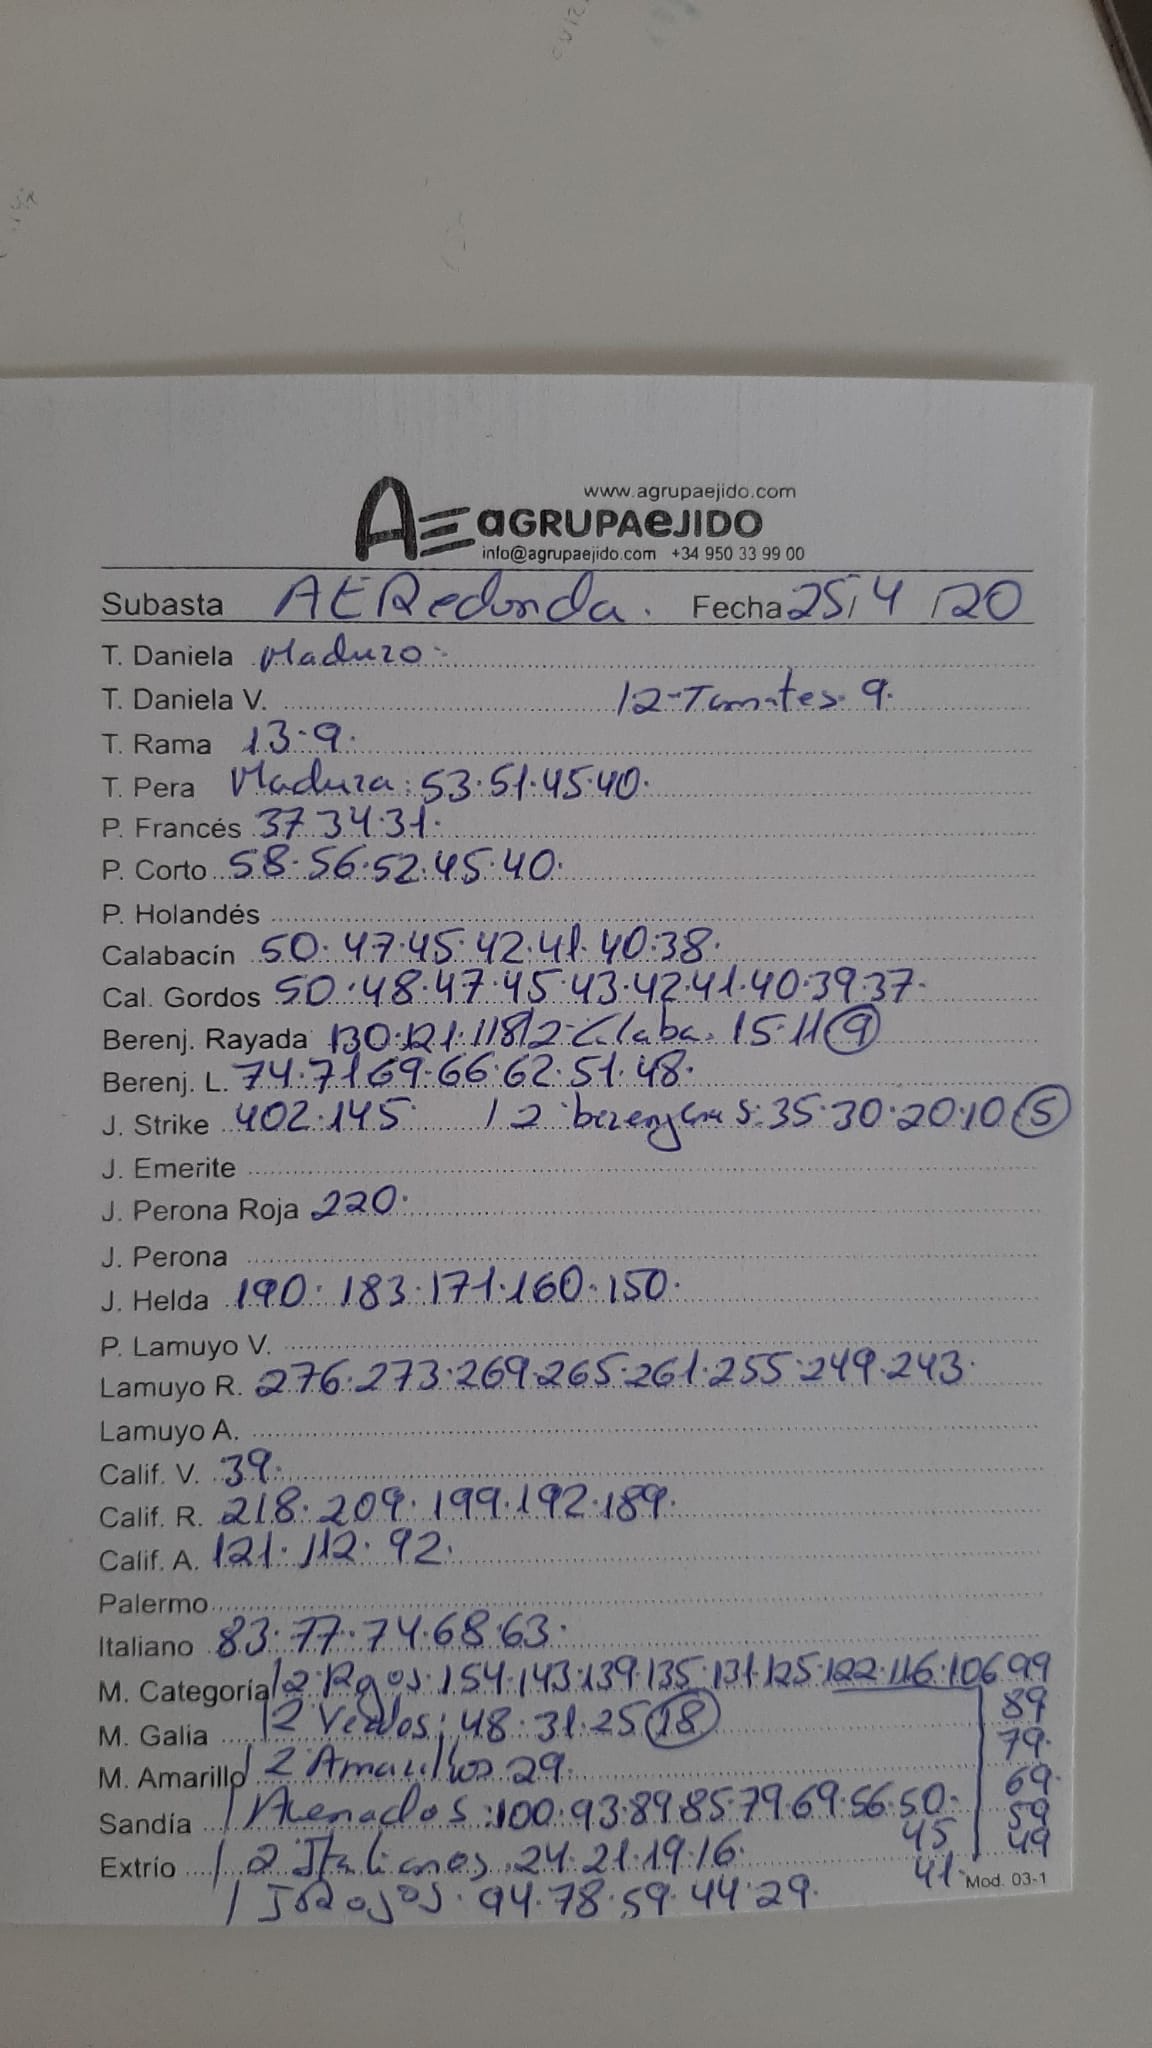 www.agrupaejido.com
AE aGRUPAeJIDO
info@agrupaejido.com +34 950 33 99 00
Subasta AE Redonda. Fecha 25/4/20
T. Daniela Maduro:
T. Daniela V. 12-Tomates. 9.
T. Rama 13.9.
T. Pera Madura: 53.51.45.40.
P. Francés 37.34.31.
P. Corto 58.56.52.45.40.
P. Holandés
Calabacín 50.47.45.42.41.40.38.
Cal. Gordos 50.48.47.45.43.42.41.40.39.37.
Berenj. Rayada 130.121.118/2-Calaba. 15.11 (9)
Berenj. L. 74.71.69.66.62.51.48.
J. Strike 402.145. /2 berenjenas: 35.30.20.10 (5)
J. Emerite
J. Perona Roja 220.
J. Perona
J. Helda 190.183.171.160.150.
P. Lamuyo V.
Lamuyo R. 276.273.269.265.261.255.249.243.
Lamuyo A.
Calif. V. 39.
Calif. R. 218.209.199.192.189.
Calif. A. 121.112.92.
Palermo
Italiano 83.77.74.68.63.
M. Categoría /2 Rojos. 154.143.139.135.131.125.122.116.106.99
89
M. Galia /2 Verdes: 48.31.25 (18)
79.
M. Amarillo /2 Amarillos 29.
69.
Sandía / Asenados: 100.93.89.85.79.69.56.50.
59
45
49
Extrío / 2 Italianos. 24.21.19.16.
41.
Mod. 03-1
/ J Rojos. 94.78.59.44.29.